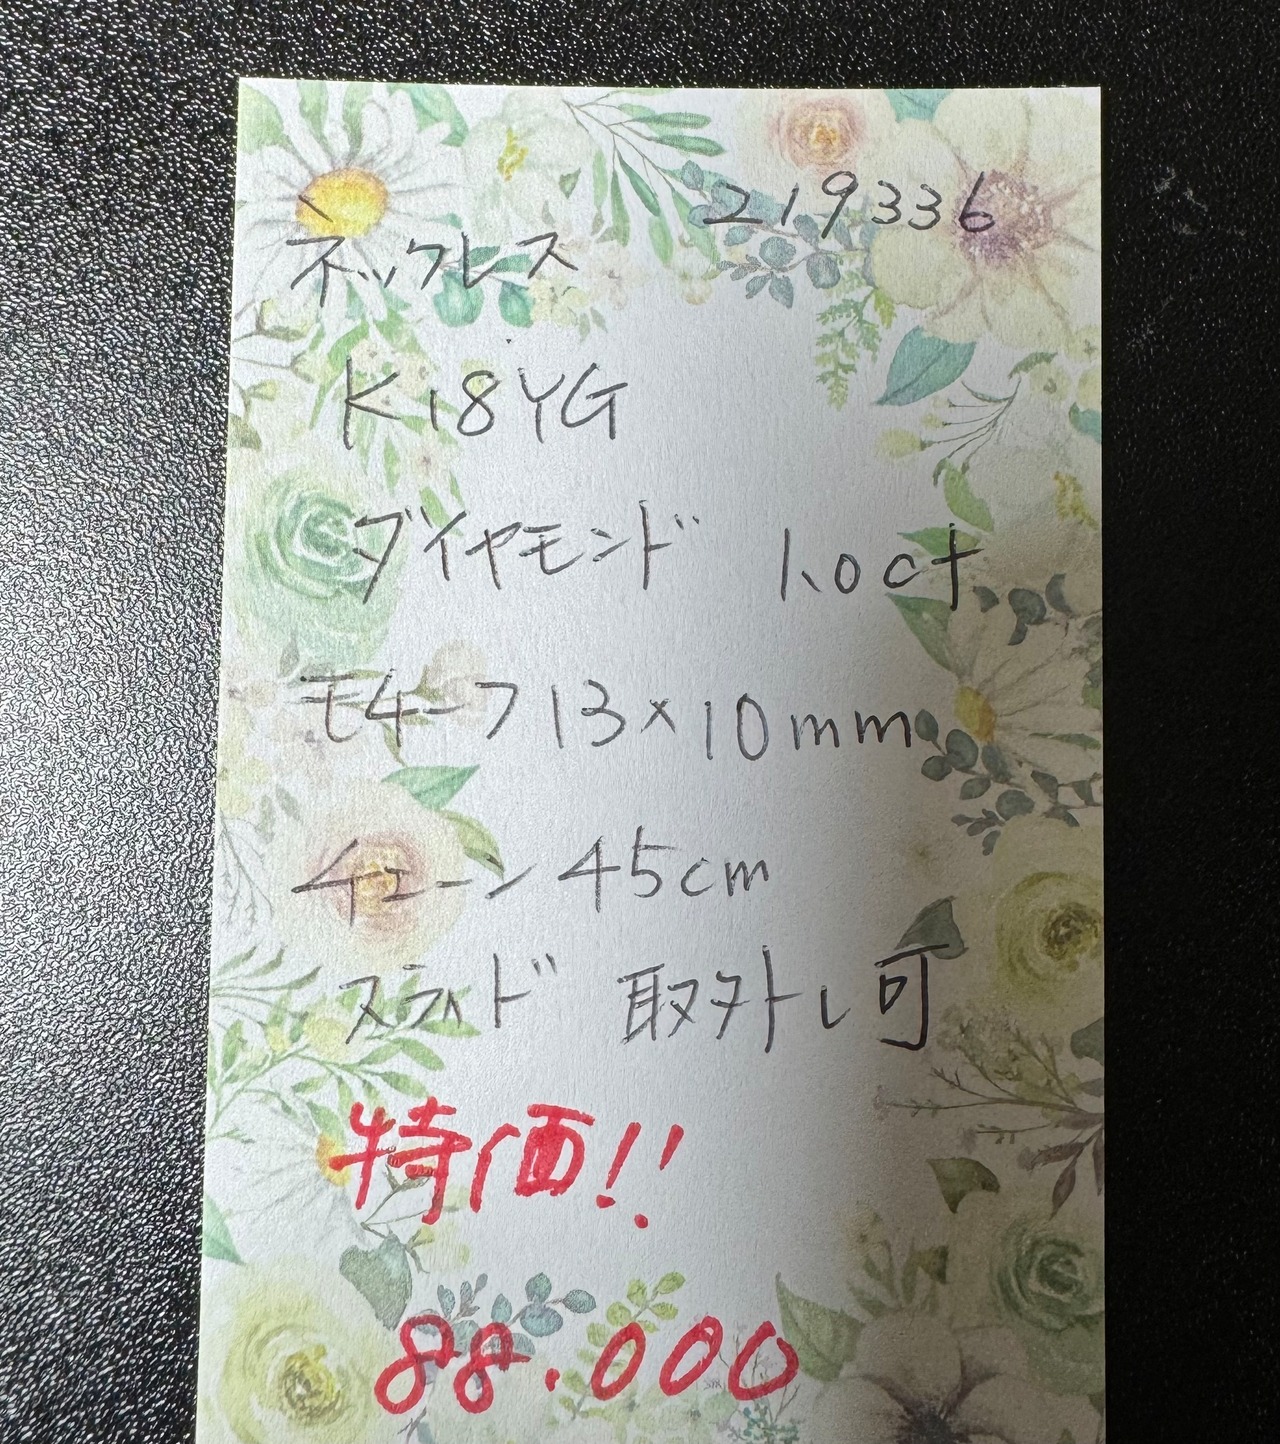 219336
ネックレス
K18YG
ダイヤモンド 1.0ct
モチーフ13×10mm
チェーン45cm
スライド 取外し可
特価!!
88.000